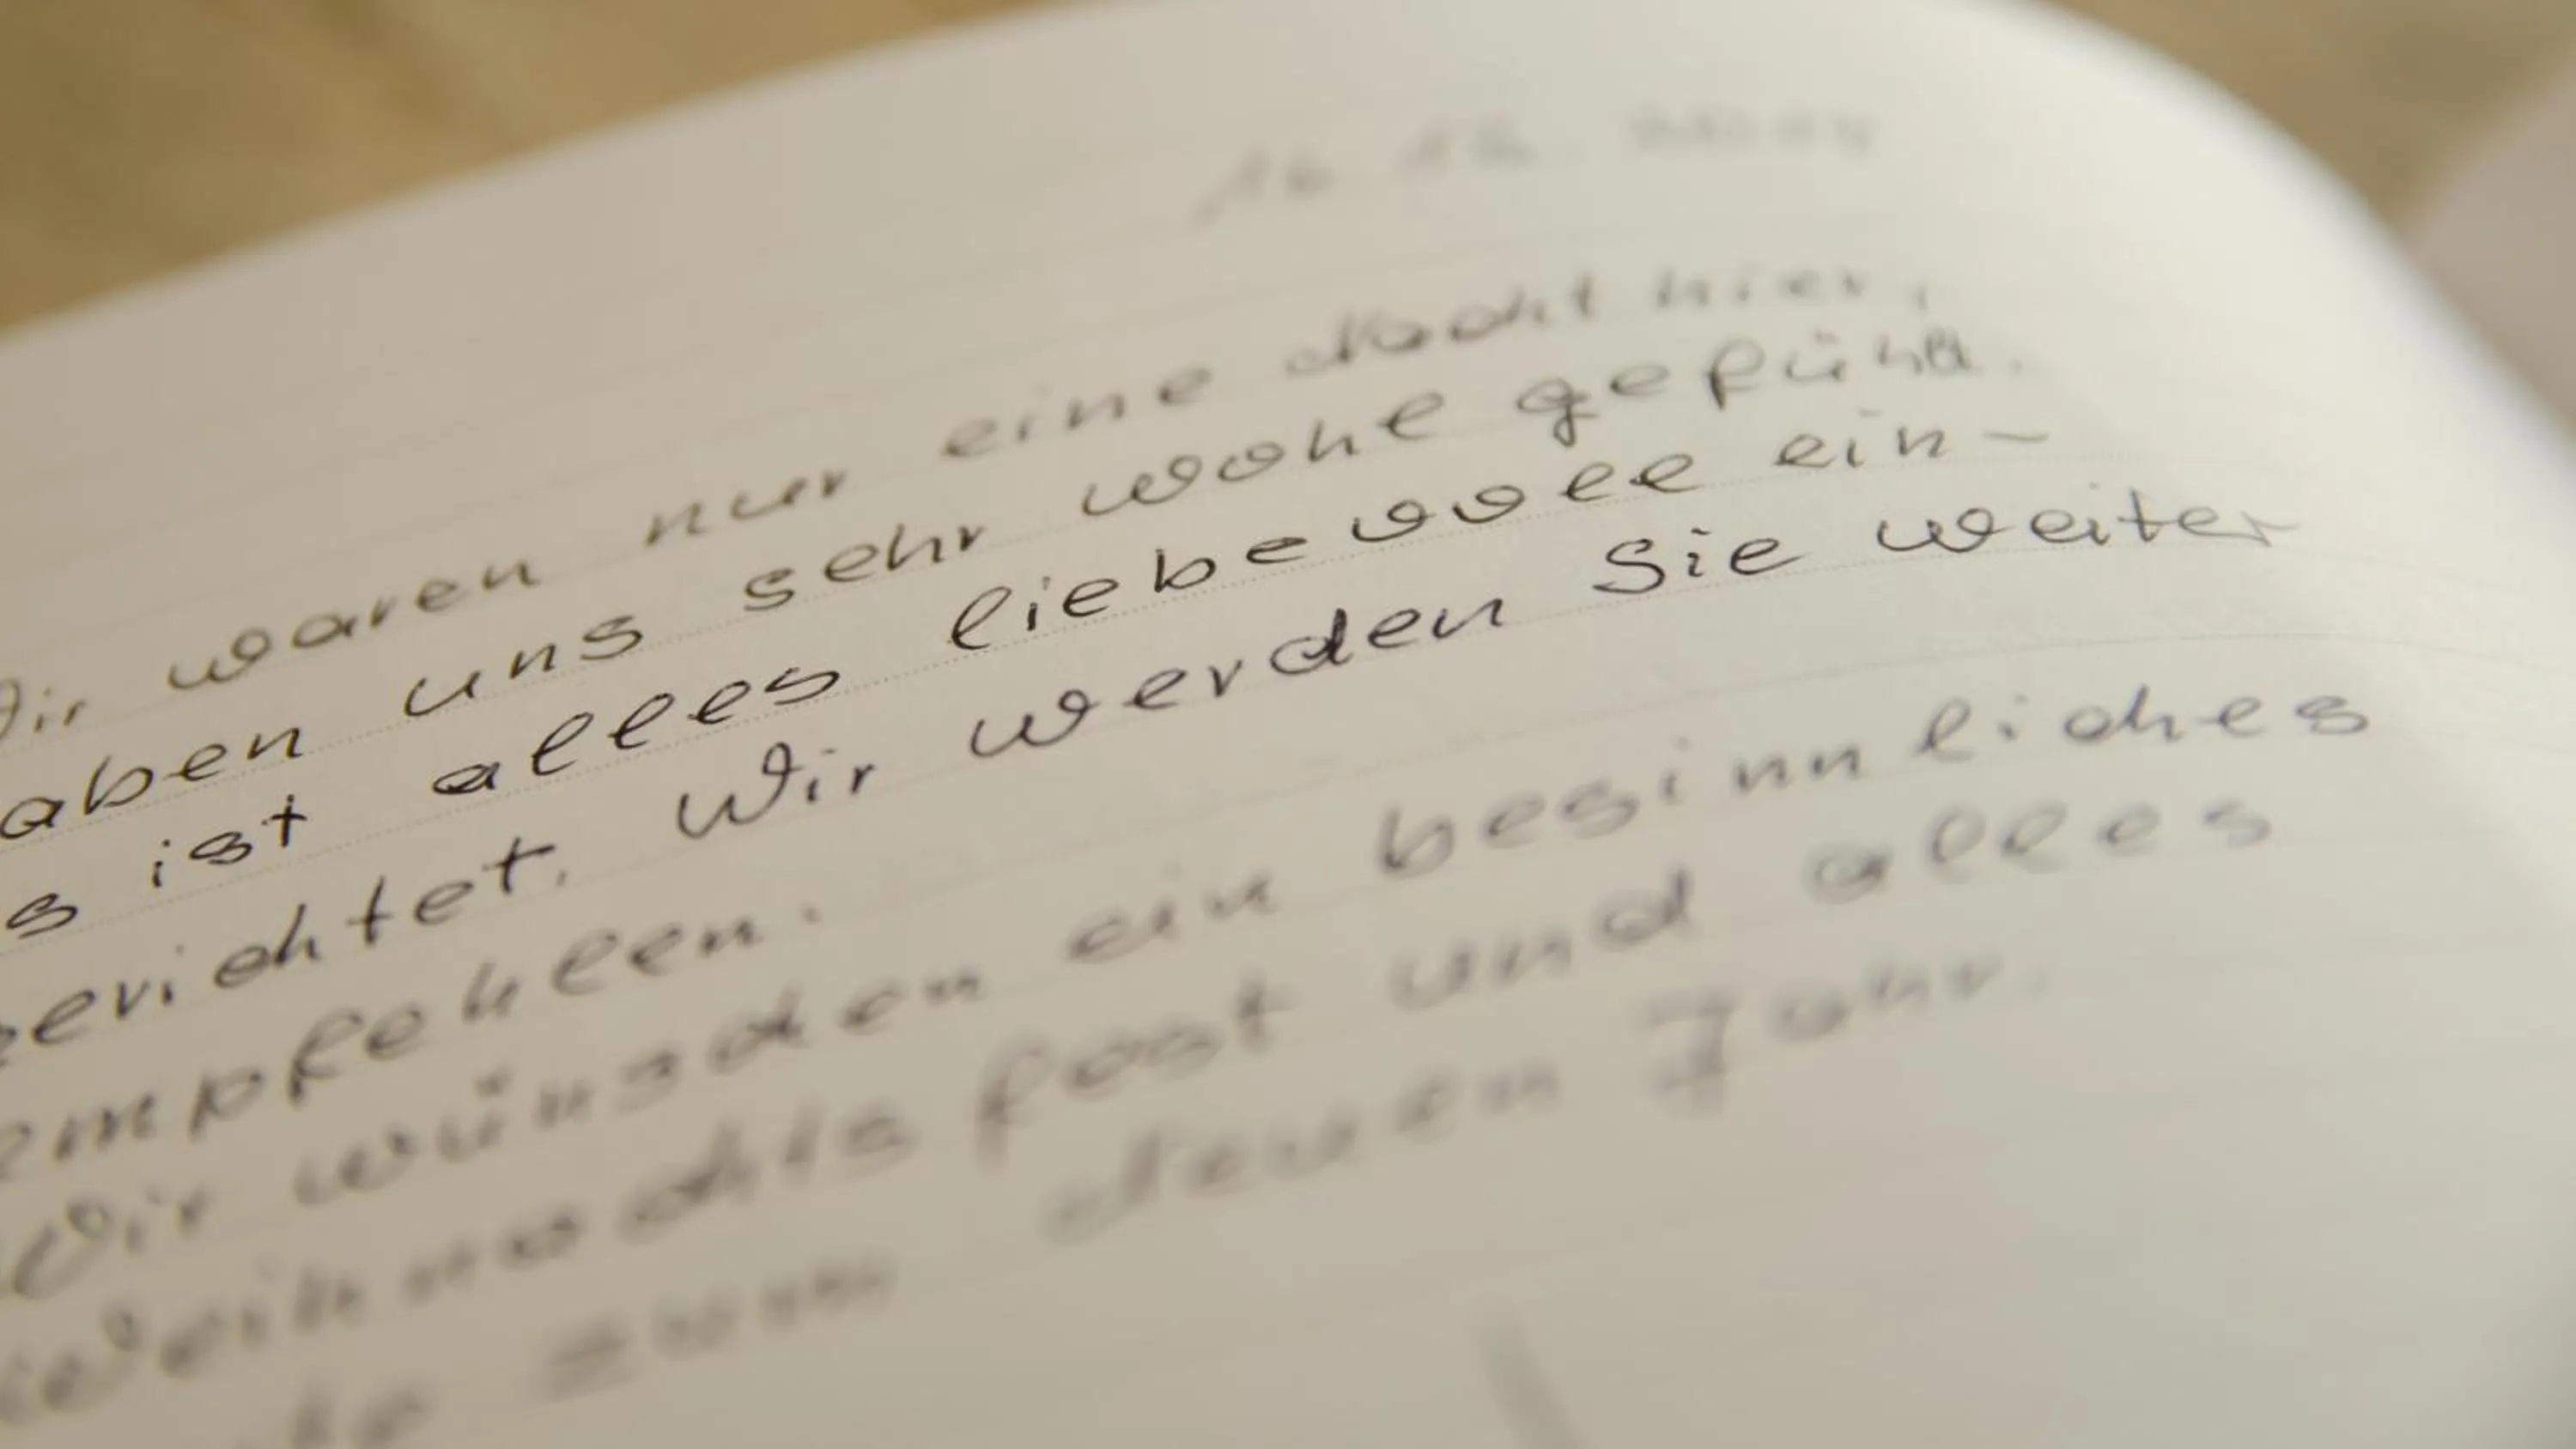 16. 12.
Wir waren nur eine Nacht hier,
aben uns sehr wohl gefühlt.
s ist alles liebevoll ein-
gerichtet. Wir werden Sie weiter
empfehlen.
Wir wünschen ein besinnliches
Weihnachtsfest und alles
zum Neuen Jahr.